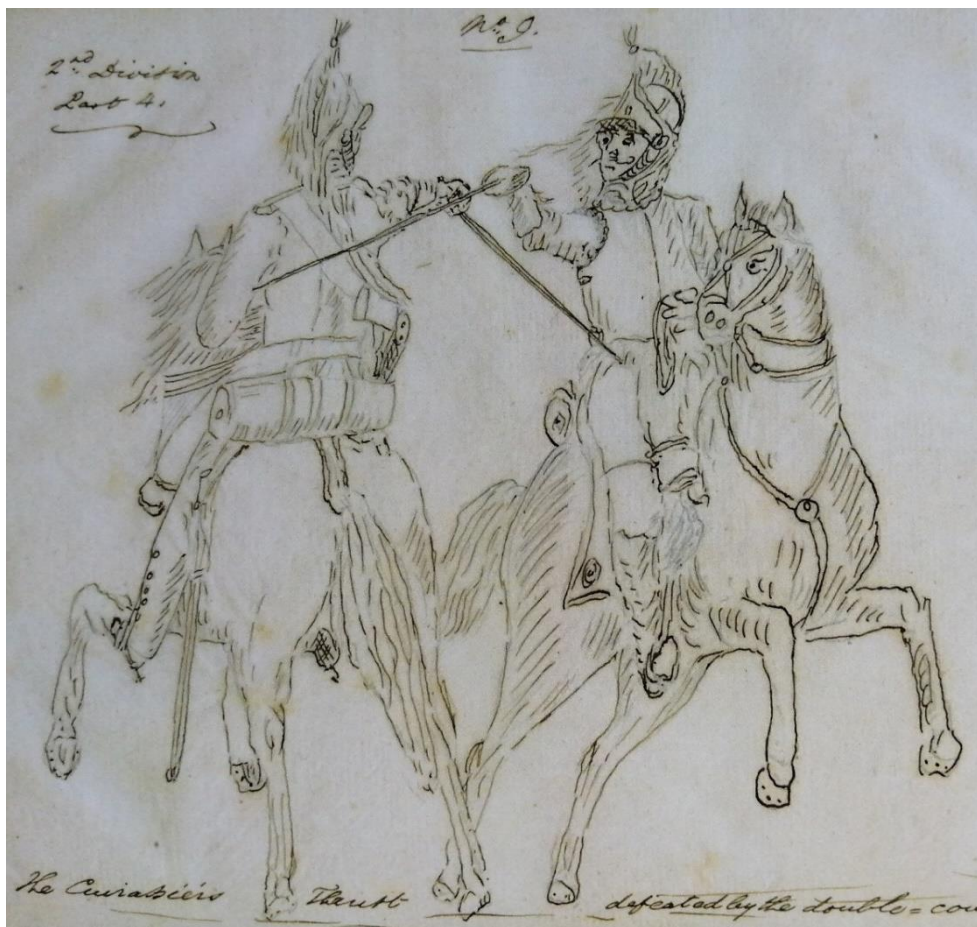 2nd Division
Part 4.
No. 9.
The Cuirassiers Thrust defeated by the double=cou